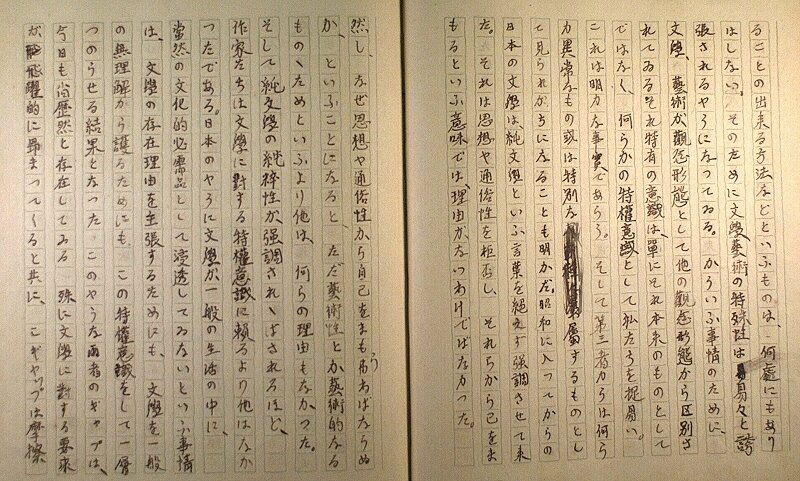 ることの出来る方法などといふものは、何處にもあり
はしない。そのために文學藝術の特殊性は易々と誇
張されるやうになつてゐる。かういふ事情のために、
文學、藝術が觀念形態として他の觀念形態から区別さ
れてゐるそれ特有の意識は、單にそれ本来のものとして
ではなく、何らかの特權意識として私たちを捉易い。
これは明力な事實であらう。そして第三者からは何ら
か異常なもの或は特別な 屬するものとし
て見られがちになることも明かだ。昭和に入つてからの
日本の文學は純文學といふ言葉を絶えず強調させて来
た。それは思想や通俗性を拒否し、それらから己をま
もるといふ意味では、理由がないわけではなかつた。
然し、なぜ思想や通俗性から自己をまもらねばならぬ
か、といふことになると、ただ藝術性とか藝術的なる
もののためといふより他は、何らの理由もなかつた。
そして純文學の純粋性が強調されゝばされるほど、
作家たちは文學に對する特權意識に頼るより他はなか
つたである。日本のやうに文學が一般の生活の中に、
當然の文化的必需品として浸透してゐないといふ事情
は、文學の存在理由を主張するためにも、文學を一般
の無理解から護るためにも、この特權意識をして一層
つのらせる結果となつた このやうな両者のギャプは、
今日も尚歴然と存在してゐる 殊に文學に對する要求
が飛躍的に昂まつてくると共に、このギャップは摩擦